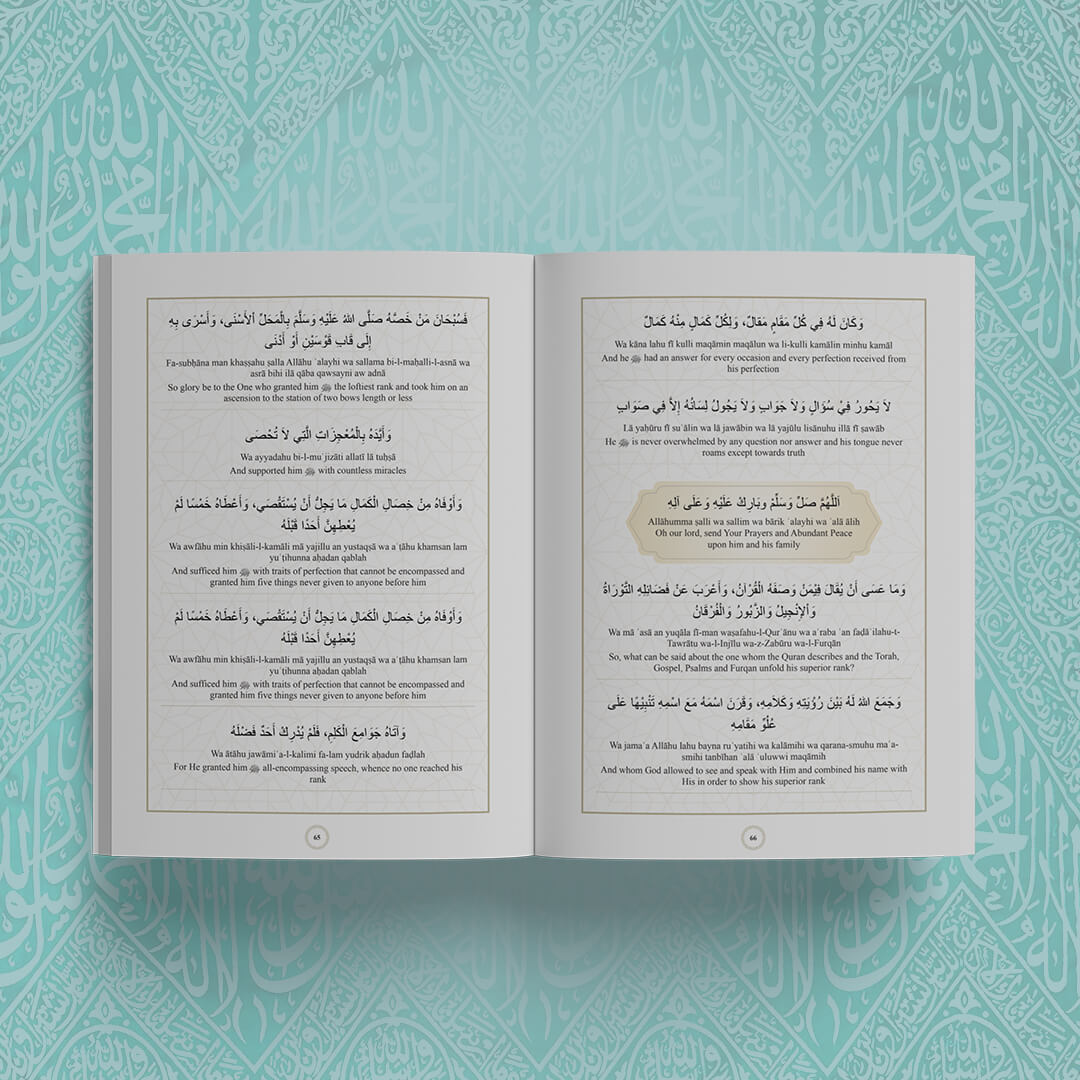 فَسُبْحَانَ مَنْ خَصَّهُ صَلَّى اللهُ عَلَيْهِ وَسَلَّمَ بِالْمَحَلِّ ٱلأَسْنَى، وَأَسْرَى بِهِ
إِلَى قَابِ قَوْسَيْنِ أَوْ أَدْنَى
Fa-subḥāna man khaṣṣahu ṣalla Allāhu ʿalayhi wa sallama bi-l-maḥalli-l-asnā wa
asrā bihi ilā qāba qawsayni aw adnā
So glory be to the One who granted him ﷺ the loftiest rank and took him on an
ascension to the station of two bows length or less
وَأَيَّدَهُ بِالْمُعْجِزَاتِ الَّتِي لاَ تُحْصَى
Wa ayyadahu bi-l-muʿjizāti allatī lā tuḥṣā
And supported him ﷺ with countless miracles
وَأَوْفَاهُ مِنْ خِصَالِ الْكَمَالِ مَا يَجِلُّ أَنْ يُسْتَقْصَي، وَأَعْطَاهُ خَمْسًا لَمْ
يُعْطِهِنَّ أَحَدًا قَبْلَهُ
Wa awfāhu min khiṣāli-l-kamāli mā yajillu an yustaqṣā wa aʿṭāhu khamsan lam
yuʿṭihunna aḥadan qablah
And sufficed him ﷺ with traits of perfection that cannot be encompassed and
granted him five things never given to anyone before him
وَأَوْفَاهُ مِنْ خِصَالِ الْكَمَالِ مَا يَجِلُّ أَنْ يُسْتَقْصَي، وَأَعْطَاهُ خَمْسًا لَمْ
يُعْطِهِنَّ أَحَدًا قَبْلَهُ
Wa awfāhu min khiṣāli-l-kamāli mā yajillu an yustaqṣā wa aʿṭāhu khamsan lam
yuʿṭihunna aḥadan qablah
And sufficed him ﷺ with traits of perfection that cannot be encompassed and
granted him five things never given to anyone before him
وَآتَاهُ جَوَامِعَ الْكَلِمِ، فَلَمْ يُدْرِكْ أَحَدٌ فَضْلَهُ
Wa ātāhu jawāmiʿa-l-kalimi fa-lam yudrik aḥadun faḍlah
For He granted him ﷺ all-encompassing speech, whence no one reached his
rank
65
وَكَانَ لَهُ فِي كُلِّ مَقَامٍ مَقَالٌ، وَلِكُلِّ كَمَالٍ مِنْهُ كَمَالٌ
Wa kāna lahu fī kulli maqāmin maqālun wa li-kulli kamālin minhu kamāl
And he ﷺ had an answer for every occasion and every perfection received from
his perfection
لاَ يَحُورُ فِيْ سُؤَالٍ وَلاَ جَوَابٍ وَلاَ يَجُولُ لِسَانُهُ إِلاَّ فِي صَوَابٍ
Lā yaḥūru fī suʾālin wa lā jawābin wa lā yajūlu lisānuhu illā fī ṣawāb
He ﷺ is never overwhelmed by any question nor answer and his tongue never
roams except towards truth
اَللَّهُمَّ صَلِّ وَسَلِّمْ وبَارِكْ عَلَيْهِ وَعَلَى آلِهِ
Allāhumma ṣalli wa sallim wa bārik ʿalayhi wa ʿalā ālih
Oh our lord, send Your Prayers and Abundant Peace
upon him and his family
وَمَا عَسَى أَنْ يُقَالَ فِيْمَنْ وَصَفَهُ الْقُرْآنُ، وَأَعْرَبَ عَنْ فَضَائِلِهِ التَّوْرَاةُ
وَٱلإِنْجِيلُ وَالزَّبُورُ وَالْفُرْقَانُ
Wa mā ʿasā an yuqāla fī-man waṣafahu-l-Qurʾānu wa aʿraba ʿan faḍāʾilahu-t-
Tawrātu wa-l-Injīlu wa-z-Zabūru wa-l-Furqān
So, what can be said about the one whom the Quran describes and the Torah,
Gospel, Psalms and Furqan unfold his superior rank?
وَجَمَعَ اللهُ لَهُ بَيْنَ رُؤْيَتِهِ وَكَلَامِهِ، وَقَرَنَ اسْمَهُ مَعَ اسْمِهِ تَنْبِيْهًا عَلَى
عُلُوِّ مَقَامِهِ
Wa jamaʿa Allāhu lahu bayna ruʾyatihi wa kalāmihi wa qarana-smuhu maʿa-
smihi tanbīhan ʿalā ʿuluwwi maqāmih
And whom God allowed to see and speak with Him and combined his name with
His in order to show his superior rank
66